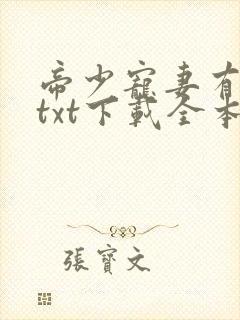 帝少寵妻有
txt下載全本
張寶文